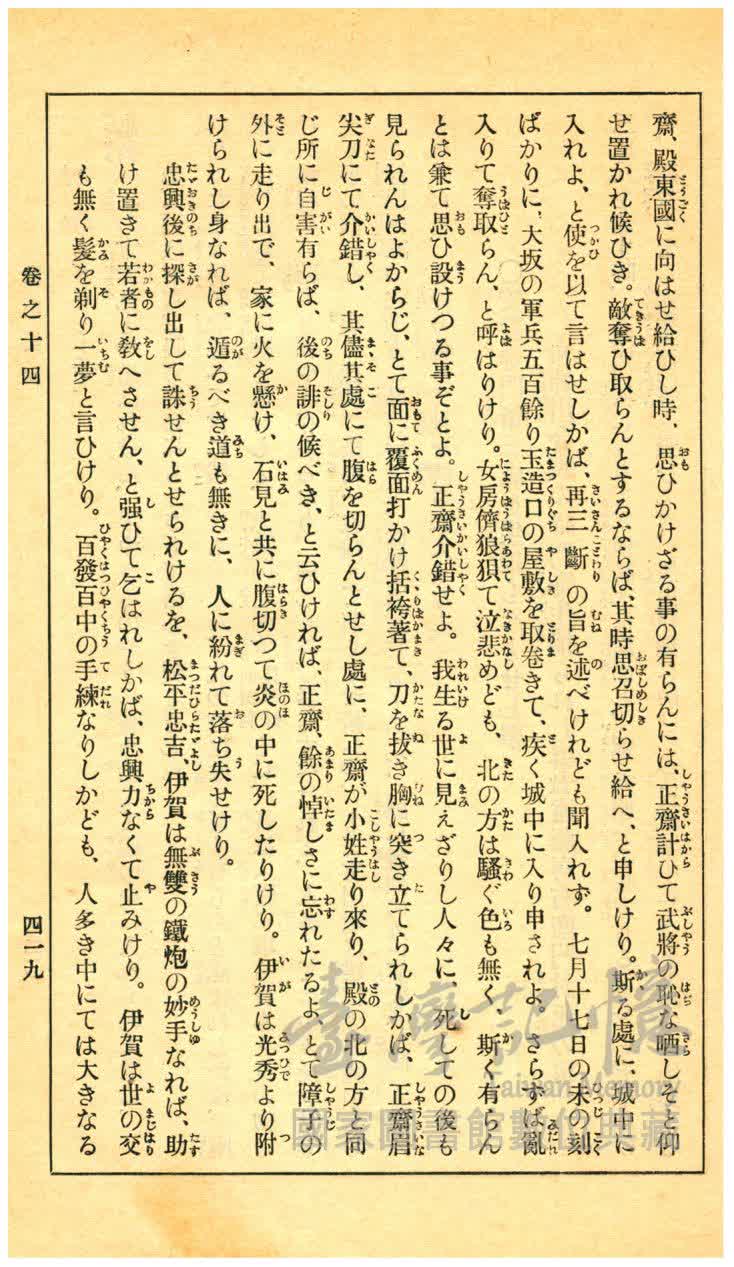 齋、殿東國に向はせ給ひし時、思ひかけざる事の有らんには、正齋計ひて武將の恥な晒しそと仰
せ置かれ候ひき。敵奪ひ取らんとするならば、其時思召切らせ給へ、と申しけり。斯る處に、城中に
入れよ、と使を以て言はせしかば、再三斷の旨を述べけれども聞入れず。七月十七日の未の刻
ばかりに、大坂の軍兵五百餘り玉造口の屋敷を取卷きて、疾く城中に入り申されよ。さらずば亂
入りて奪取らん、と呼はりけり。女房儕狼狽て泣悲めども、北の方は騷ぐ色も無く、斯く有らん
とは兼て思ひ設けつる事ぞとよ。正齋介錯せよ。我生る世に見えざりし人々に、死しての後も
見られんはよからじ、とて面に覆面打かけ括袴著て、刀を拔き胸に突き立てられしかば、正齋眉
尖刀にて介錯し、其儘其處にて腹を切らんとせし處に、正齋が小姓走り來り、殿の北の方と同
じ所に自害有らば、後の誹の候べき、と云ひければ、正齋、餘の悼しさに忘れたるよ、とて障子の
外に走り出で、家に火を懸け、石見と共に腹切つて炎の中に死したりけり。伊賀は光秀より附
けられし身なれば、遁るべき道も無きに、人に紛れて落ち失せけり。
忠興後に探し出して誅せんとせられけるを、松平忠吉、伊賀は無雙の鐵炮の妙手なれば、助
け置きて若者に敎へさせん、と强ひて乞はれしかば、忠興力なくて止みけり。伊賀は世の交
も無く髮を剃り一夢と言ひけり。百發百中の手練なりしかども、人多き中にては大きなる
卷之十四
四一九
臺灣記憶
Taiwan Memory
國家圖書館數位典藏